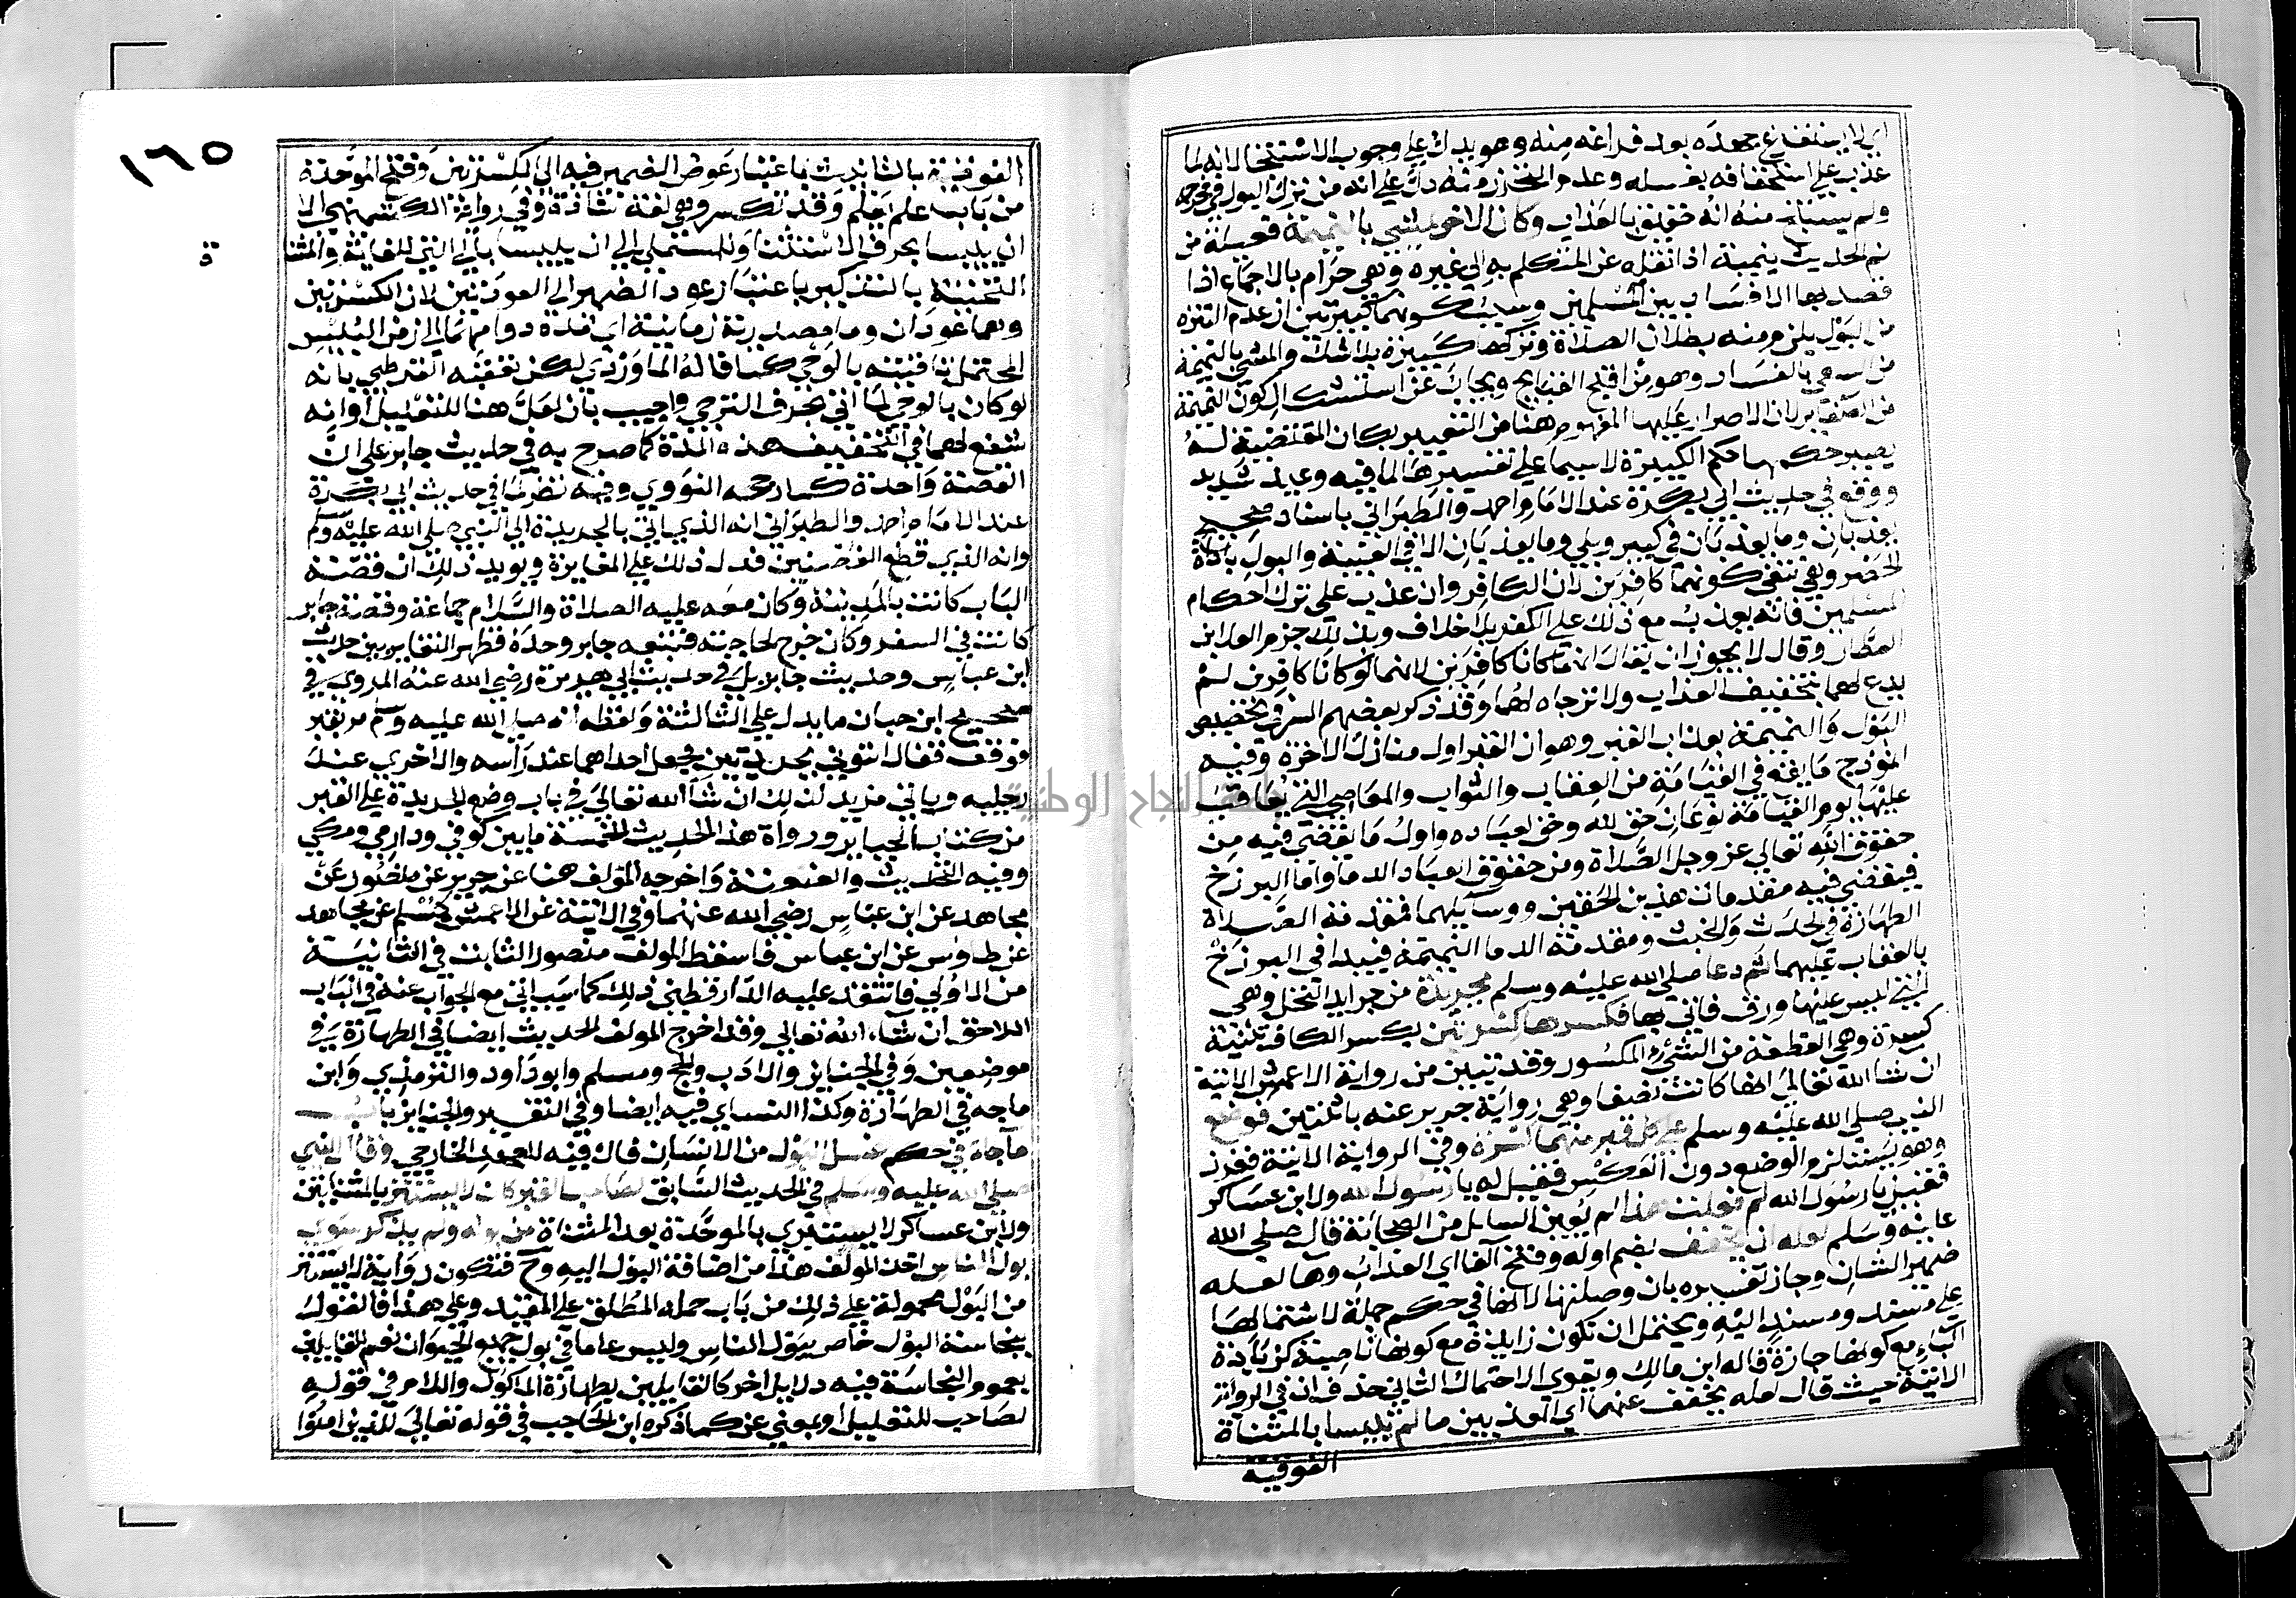 اي لا يستفرغ جهده بعد فراغه منه وهو يدل علي وجوب الاستنجا لانه لما
عذب علي استخفافه بغسله وعدم التحرز منه دل علي انه من ترك البول في مخرجه
ولم يستنج منه انه حقيق بالعذاب وكان الاخر يمشي بالنميمة فعيلة من
نم الحديث ينمه اذا نقله عن المتكلم به الي غيره وهي حرام بالاجماع اذا
قصد بها الافساد بين المسلمين وسبب كونهما كبيرتين ان عدم التنزه
من البول يلزم منه بطلان الصلاة وتركها كبيرة بلا شك والمشي بالنميمة
من السعي بالفساد وهو من اقبح القبايح ويجاب عن استشكال كون النميمة
من الصغاير بان الاصرار عليها المفهوم هنا من التعبير بكان المقتضية له
يصير حكمها حكم الكبيرة لا سيما علي تفسيرها لما فيه وعيد شديد
ووقع في حديث ابي بكرة عند الامام احمد والطبراني باسناد صحيح
يعذبان وما يعذبان في كبير وبلي وما يعذبان الا في الغيبة والبول باداة
الحصر وهي تنفي كونهما كافرين لان الكافر وان عذب علي ترك احكام
المسلمين فانه يعذب مع ذلك علي الكفر بلا خلاف وبذلك جزم العلا ابن
العطار وقال لا يجوز ان يقال انهما كانا كافرين لانهما لو كانا كافرين لم
يدع لهما بتخفيف العذاب ولا ترجاه لهما وقد ذكر بعضهم السر في تخصيص
البول والنميمة بعذاب القبر وهو ان القبر اول منازل الاخرة وفيه
انموذج ما يقع في القيامة من العقاب والثواب والمعاصي التي يعاقب
عليها يوم القيامة نوعان حق لله وحق لعباده واول ما يقضي فيه من
حقوق الله تعالي عز وجل الصلاة ومن حقوق العباد الدما واما البرزخ
فيقضي فيه مقدمات هذين الحقين ووسايلهما فمقدمة الصلاة
الطهارة في الحدث والخبث ومقدمة الدما النميمة فيبدا في البرزخ
بالعقاب عليهما ثم دعا صلي الله عليه وسلم بجريدة من جرايد النخل وهي
التي ليس عليها ورق فاتي بها فكسرها كسرتين بكسر الكاف تثنية
كسرة وهي القطعة من الشيء المكسور وقد تبين من رواية الاعمش الاتية
ان شا الله تعالي انها كانت نصفا وهي رواية جرير عنه باثنتين فوضع
النبي صلي الله عليه وسلم علي كل قبر منهما كسرة وفي الرواية الاتية فغرز
وهو يستلزم الوضع دون العكس فقيل له يا رسول الله ولابن عساكر
فقيل يا رسول الله لم فعلت هذا لم يعين السايل من الصحابة قال صلي الله
عليه وسلم لعله ان يخفف بضم اوله وفتح الفا اي العذاب وها لعله
ضمير الشان وجاز تفسيره بان وصلتها لانها في حكم جملة لاشتمالها
علي مسند ومسند اليه ويحتمل ان تكون زايدة مع كونها ناصبة كزيادة
الباء مع كونها جارة قاله ابن مالك ويقوي الاحتمال الثاني حذف ان في الرواية
الاتية حيث قال لعله يخفف عنهما اي المعذبين ما لم تيبسا بالمثناة
الفوقيه
١٦٥
الفوقية بالتانيث باعتبار عوض الضمير فيه الي الكسرتين وفتح الموحدة
من باب علم يعلم وقد تكسر وهي لغة شاذة وفي رواية الكشميهني الا
ان ييبسا بحرف الاستثنا وللمستملي الي ان ييبسا بالي التي للغاية والمثناة
التحتية بالتذكير باعتبار عود الضمير الي العودين لان الكسرتين
وهما عودان وما مصدرية زمانية اي مدة دوامهما الي زمن اليبس
المحتمل تاقيته بالوحي كما قاله الماوردي لكن تعقبه القرطبي بانه
لو كان بالوحي لما اتي بحرف الترجي واجيب بان لعل هنا للتعليل او انه
شفع لهما في التخفيف هذه المدة كما صرح به في حديث جابر علي ان
القصة واحدة كما رجحه النووي وفيه نظر لما في حديث ابي بكرة
عند الامام احمد والطبراني انه الذي اتي بالجريدة الي النبي صلي الله عليه وسلم
وانه الذي قطع الغصنين فدل ذلك علي المغايرة ويويد ذلك ان قصة
الباب كانت بالمدينة وكان معه عليه الصلاة والسلام جماعة وقصة جابر
كانت في السفر وكان خرج لحاجته فتبعه جابر وحده فظهر التغاير بين حديث
ابن عباس وحديث جابر بل في حديث ابي هريرة رضي الله عنه المروي في
صحيح ابن حبان ما يدل علي الثالثة ولفظه انه صلي الله عليه وسلم مر بقبر
فوقف فقال ائتوني بجريدتين فجعل احداهما عند راسه والاخري عند
رجليه وياتي مزيد لذلك ان شا الله تعالي في باب وضع الجريدة علي القبر
من كتاب الجنايز ورواة هذا الحديث الخمسة ما بين كوفي ودارمي ومكي
وفيه التحديث والعنعنة واخرجه المولف هنا عن جرير عن منصور عن
مجاهد عن ابن عباس رضي الله عنهما وفي الاتية عن الاعمش كمسلم عن مجاهد
عن طاوس عن ابن عباس فاسقط المولف منصور الثابت في الثانية
من الاولي فانتقد عليه الدارقطني ذلك كما سياتي مع الجواب عنه في الباب
اللاحق ان شاء الله تعالي وقد اخرج المولف الحديث ايضا في الطهارة في
موضعين وفي الجنايز والادب والحج ومسلم وابو داود والترمذي وابن
ماجه في الطهارة وكذا النساي فيه ايضا وفي التفسير والجنايز باب
ما جاء في حكم غسل البول من الانسان فال فيه للعهد الخارجي وقال النبي
صلي الله عليه وسلم في الحديث السابق لصاحب القبر كان لا يستتر بالمثناتين
ولابن عساكر لا يستبري بالموحدة بعد المثناة من بوله ولم يذكر سوي
بول الناس اخذ المولف هذا من اضافة البول اليه وح فتكون رواية لا يستتر
من البول محمولة علي ذلك من باب حمل المطلق علي المقيد وعلي هذا فالقول
بنجاسة البول خاص ببول الناس وليس عاما في بول جميع الحيوان نعم للقايلين
بعموم النجاسة فيه دلايل اخر كالقايلين بطهارة الماكول واللام في قوله
لصاحب للتعليل او بمعني عن كما ذكره ابن الحاجب في قوله تعالي للذين امنوا
جامعة النجاح الوطنية